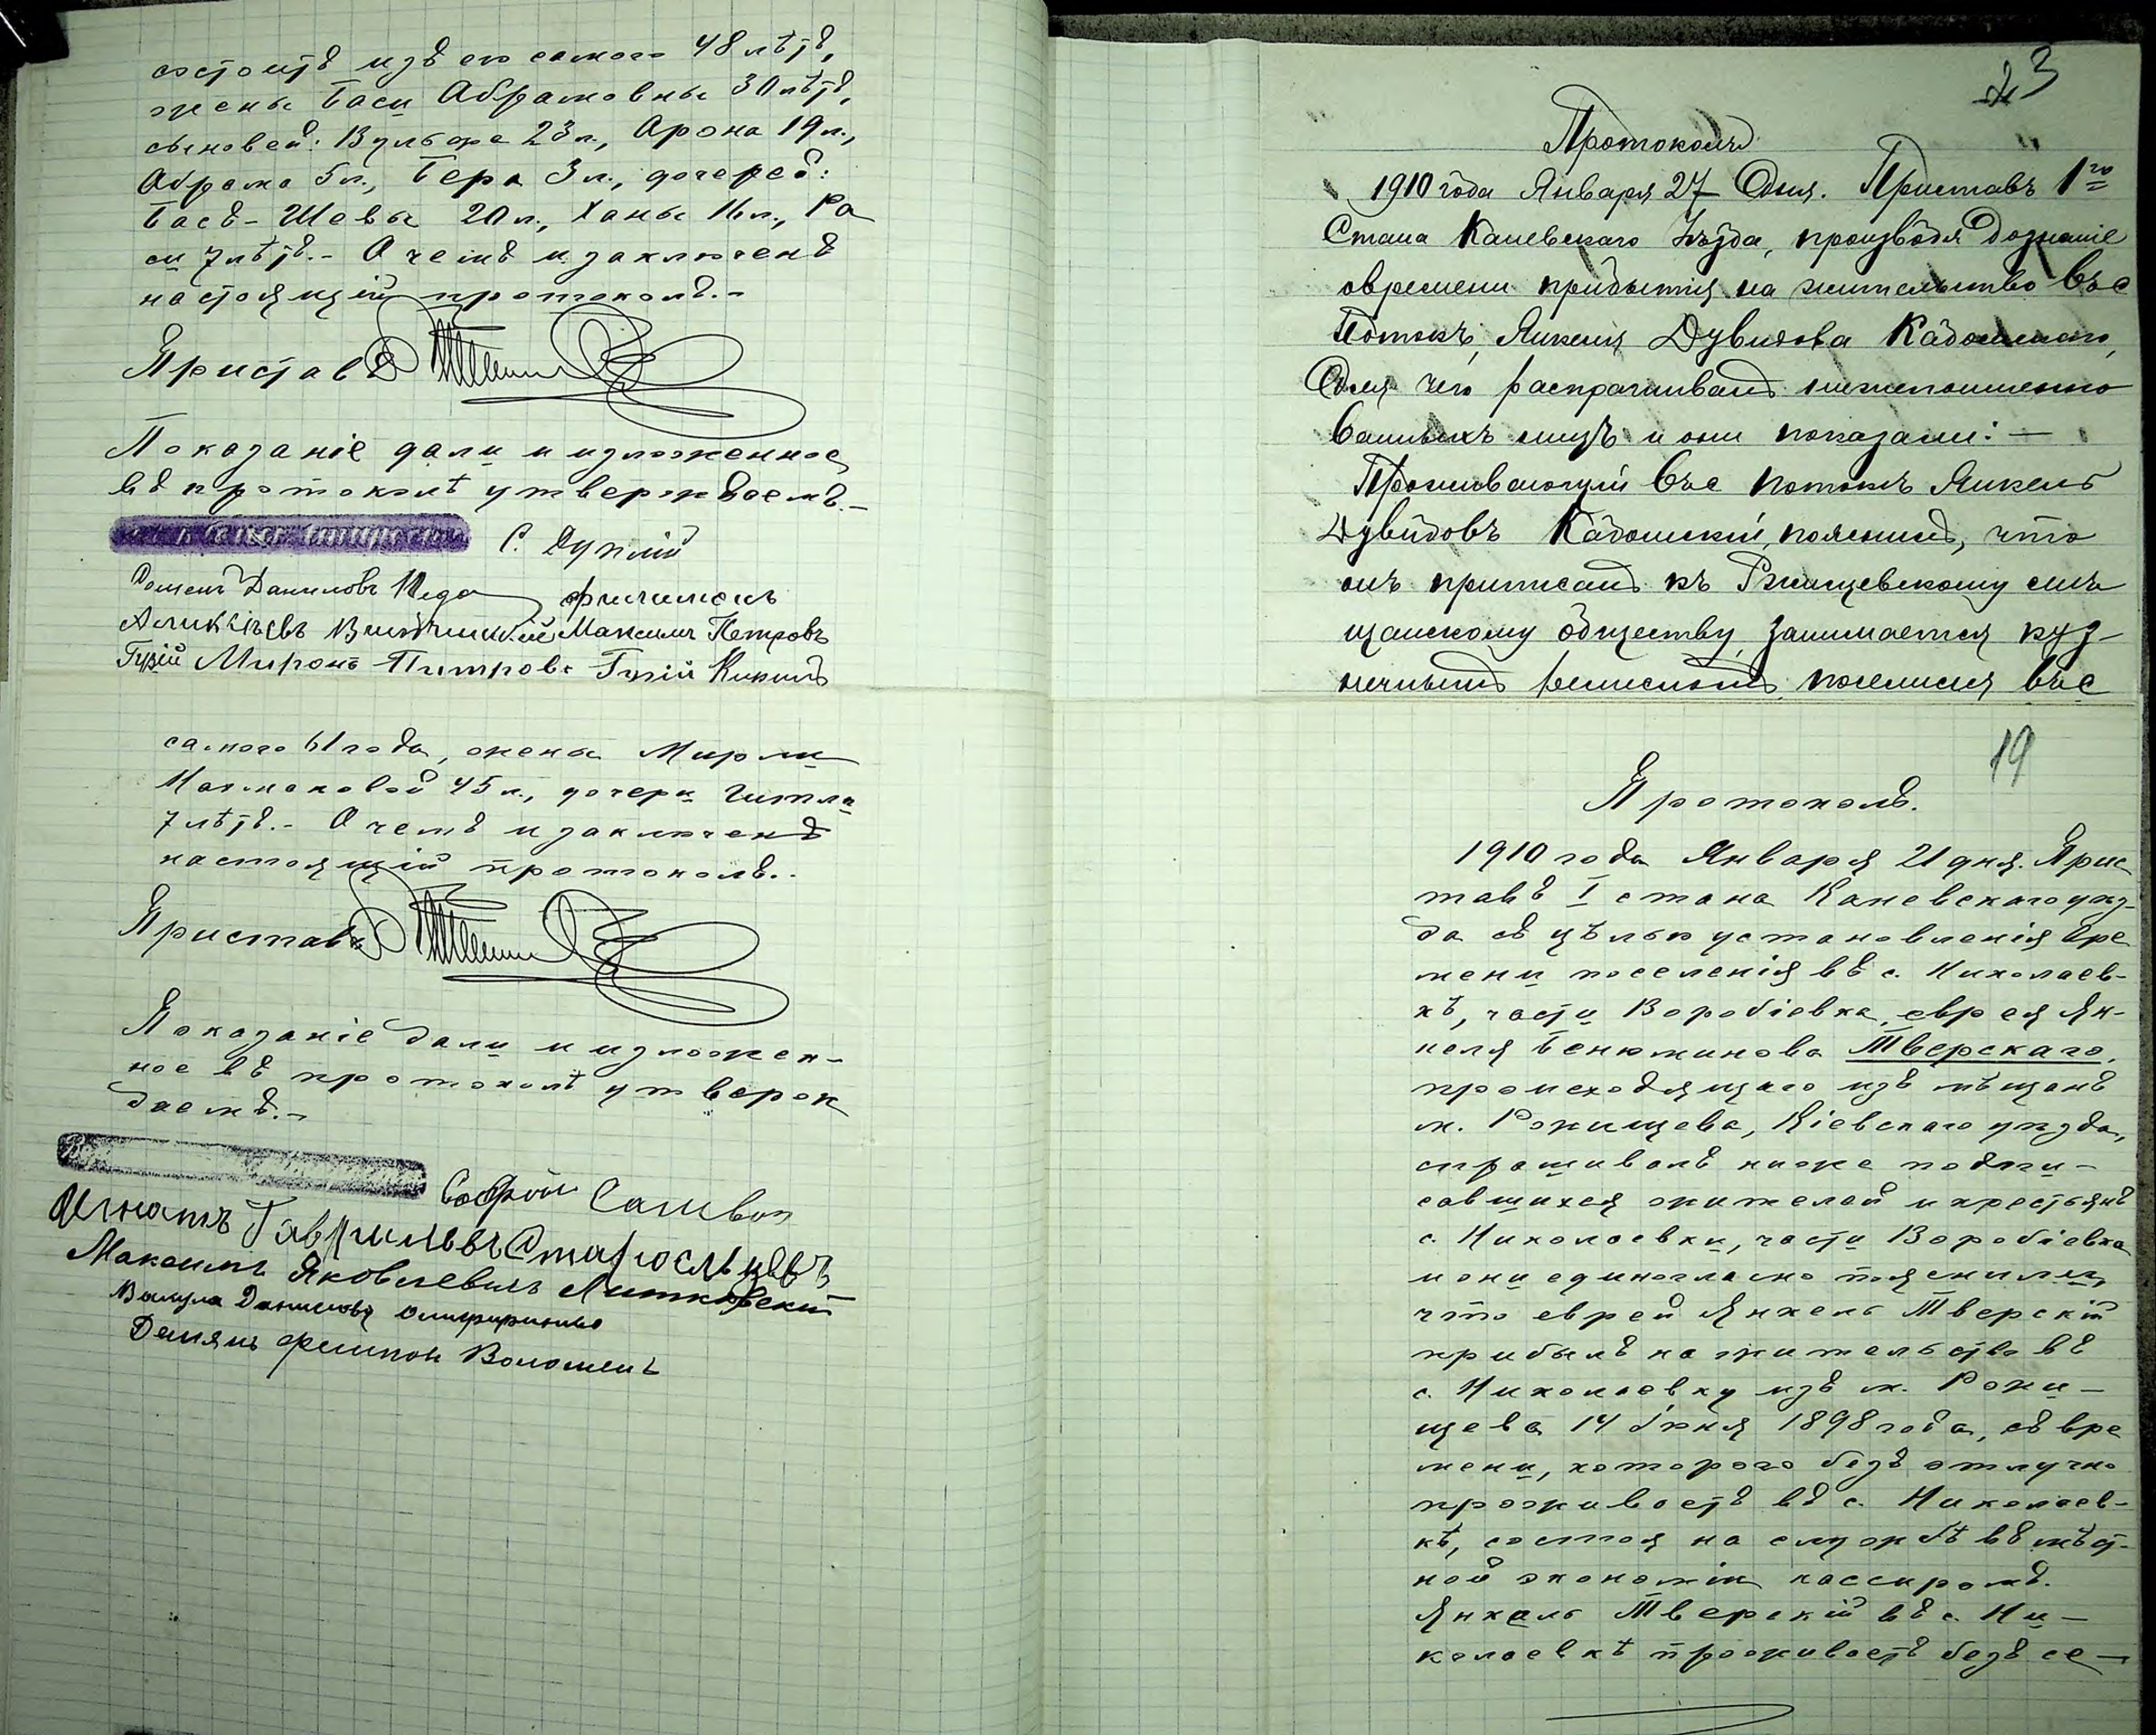 состоитъ изъ его самого 48 лѣтъ,
жены Баси Абрамовны 30 лѣтъ,
сыновей: Вульфа 23 л., Арона 19 л.,
Абрама 5 л., Бера 3 л., дочерей:
Бася-Шевы 20 л., Ханы 16 л., Ра
си 7 лѣтъ.- О чемъ и заключенъ
настоящій протоколъ.-
Приставъ
Показаніе дали и изложенное
въ протоколѣ утверждаемъ.-
С. Дуплій
Даниловъ
Максимъ Петровъ
Гузій Миронъ Питровъ Гузій
самого 61 года, жены Мирли
Нахмановой 45 л., дочери Гитли
7 лѣтъ.- О чемъ и заключенъ
настоящій протоколъ..
Приставъ
Показаніе дали и изложен-
ное въ протоколѣ утверж
даемъ.-
Игнатъ
Максимъ Яковлевичъ
Вакула Данилово
Демянъ Филипон
23
Протоколъ
1910 года Января 27 Дня. Приставъ 1го
Стана Каневскаго Уѣзда, производя дознаніе
овремени прибытія на жительство въ с
Потокъ, Янкеля Дувидова Кадошскаго,
Для чего распрашивалъ нижепоимено
ванныхъ лицъ и они показали: —
Проживающій въ с Потокъ Янкель
Дувидовъ Кадошскій, пояснилъ, что
онъ приписанъ къ Ржищевскому мѣ
щанскому обществу, занимается куз-
нечнымъ ремисломъ, поселился въ с
19
Протоколъ.
1910 года Января 21 дня. Прис
тавъ I стана Каневскаго уѣз-
да съ цѣлью установленія вре
мени поселенія въ с. Николаев-
кѣ, части Воробіевка, еврея Ян-
келя Бенюминова Тверскаго,
происходящаго изъ мѣщанъ
м. Ржищева, Кіевскаго уѣзда,
спрашивалъ ниже подпи-
савшихся жителей и крестьянъ
с. Николаевки, части Воробіевка
и они единогласно пояснили,
что еврей Янкель Тверскій
прибылъ на жительство въ
с. Николаевку изъ м. Ржи-
щева 14 Іюня 1898 года, съ вре
мени, котораго безъ отлучно
проживаетъ въ с. Николаев-
кѣ, состоя на службѣ въ мѣст-
ной экономіи кассиромъ.
Янкель Тверскій въ с. Ни-
колаевкѣ проживаетъ безъ се-